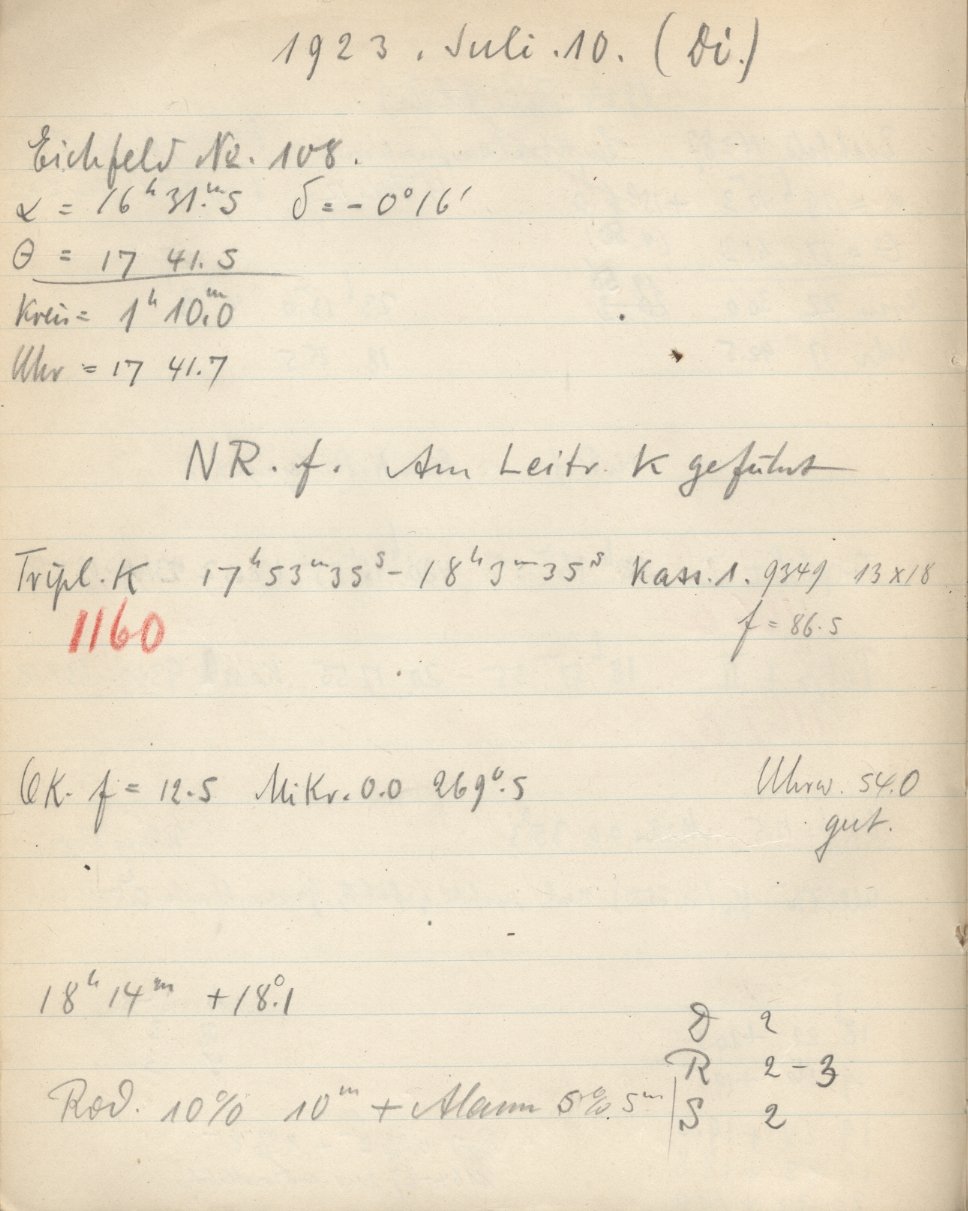 1923. Juli. 10. (Di.)
Eichfeld Nr. 108.
α = 16ʰ 31.ᵐ5 δ = - 0° 16'
θ = 17 41.5
Kreis = 1ʰ 10.ᵐ0
Uhr = 17 41.7
NR. f. Am Leitr. K geführt
Tripl. K 17ʰ 53ᵐ 35ˢ - 18ʰ 3ᵐ 35ˢ Kass. 1. 9349 13x18
1160
f = 86.5
OK. f = 12.5 Mikr. 0.0 269°.5 Uhrw. 54.0
gut.
18ʰ 14ᵐ +18°.1
D 2
R 2-3
Rod. 10% 10ᵐ + Alaun 5% 5ᵐ
S 2